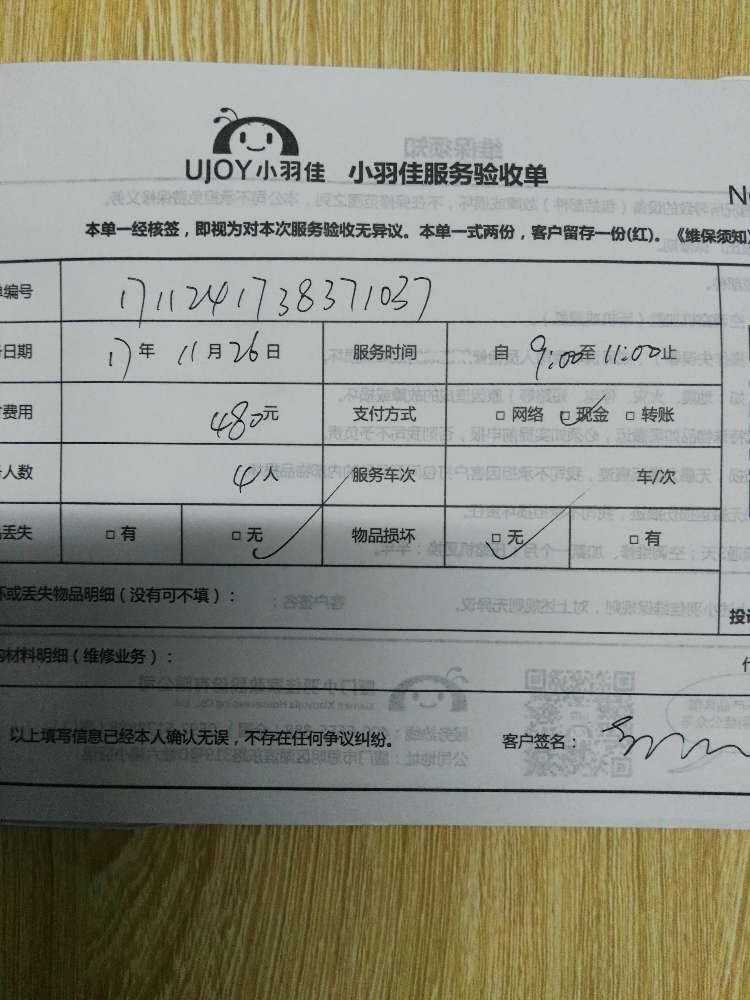 UJOY小羽佳 小羽佳服务验收单
本单一经核签，即视为对本次服务验收无异议。本单一式两份，客户留存一份(红)。《维保须知》
编号 1711241738371037
日期 17年 11月26日 服务时间 自 9:00至11:00止
费用 480元 支付方式 □ 网络 □ 现金 □ 转账
人数 4人 服务车次 车/次
丢失 □ 有 □ 无 物品损坏 □ 无 □ 有
坏或丢失物品明细（没有可不填）：
材料明细（维修业务）：
以上填写信息已经本人确认无误，不存在任何争议纠纷。 客户签名：